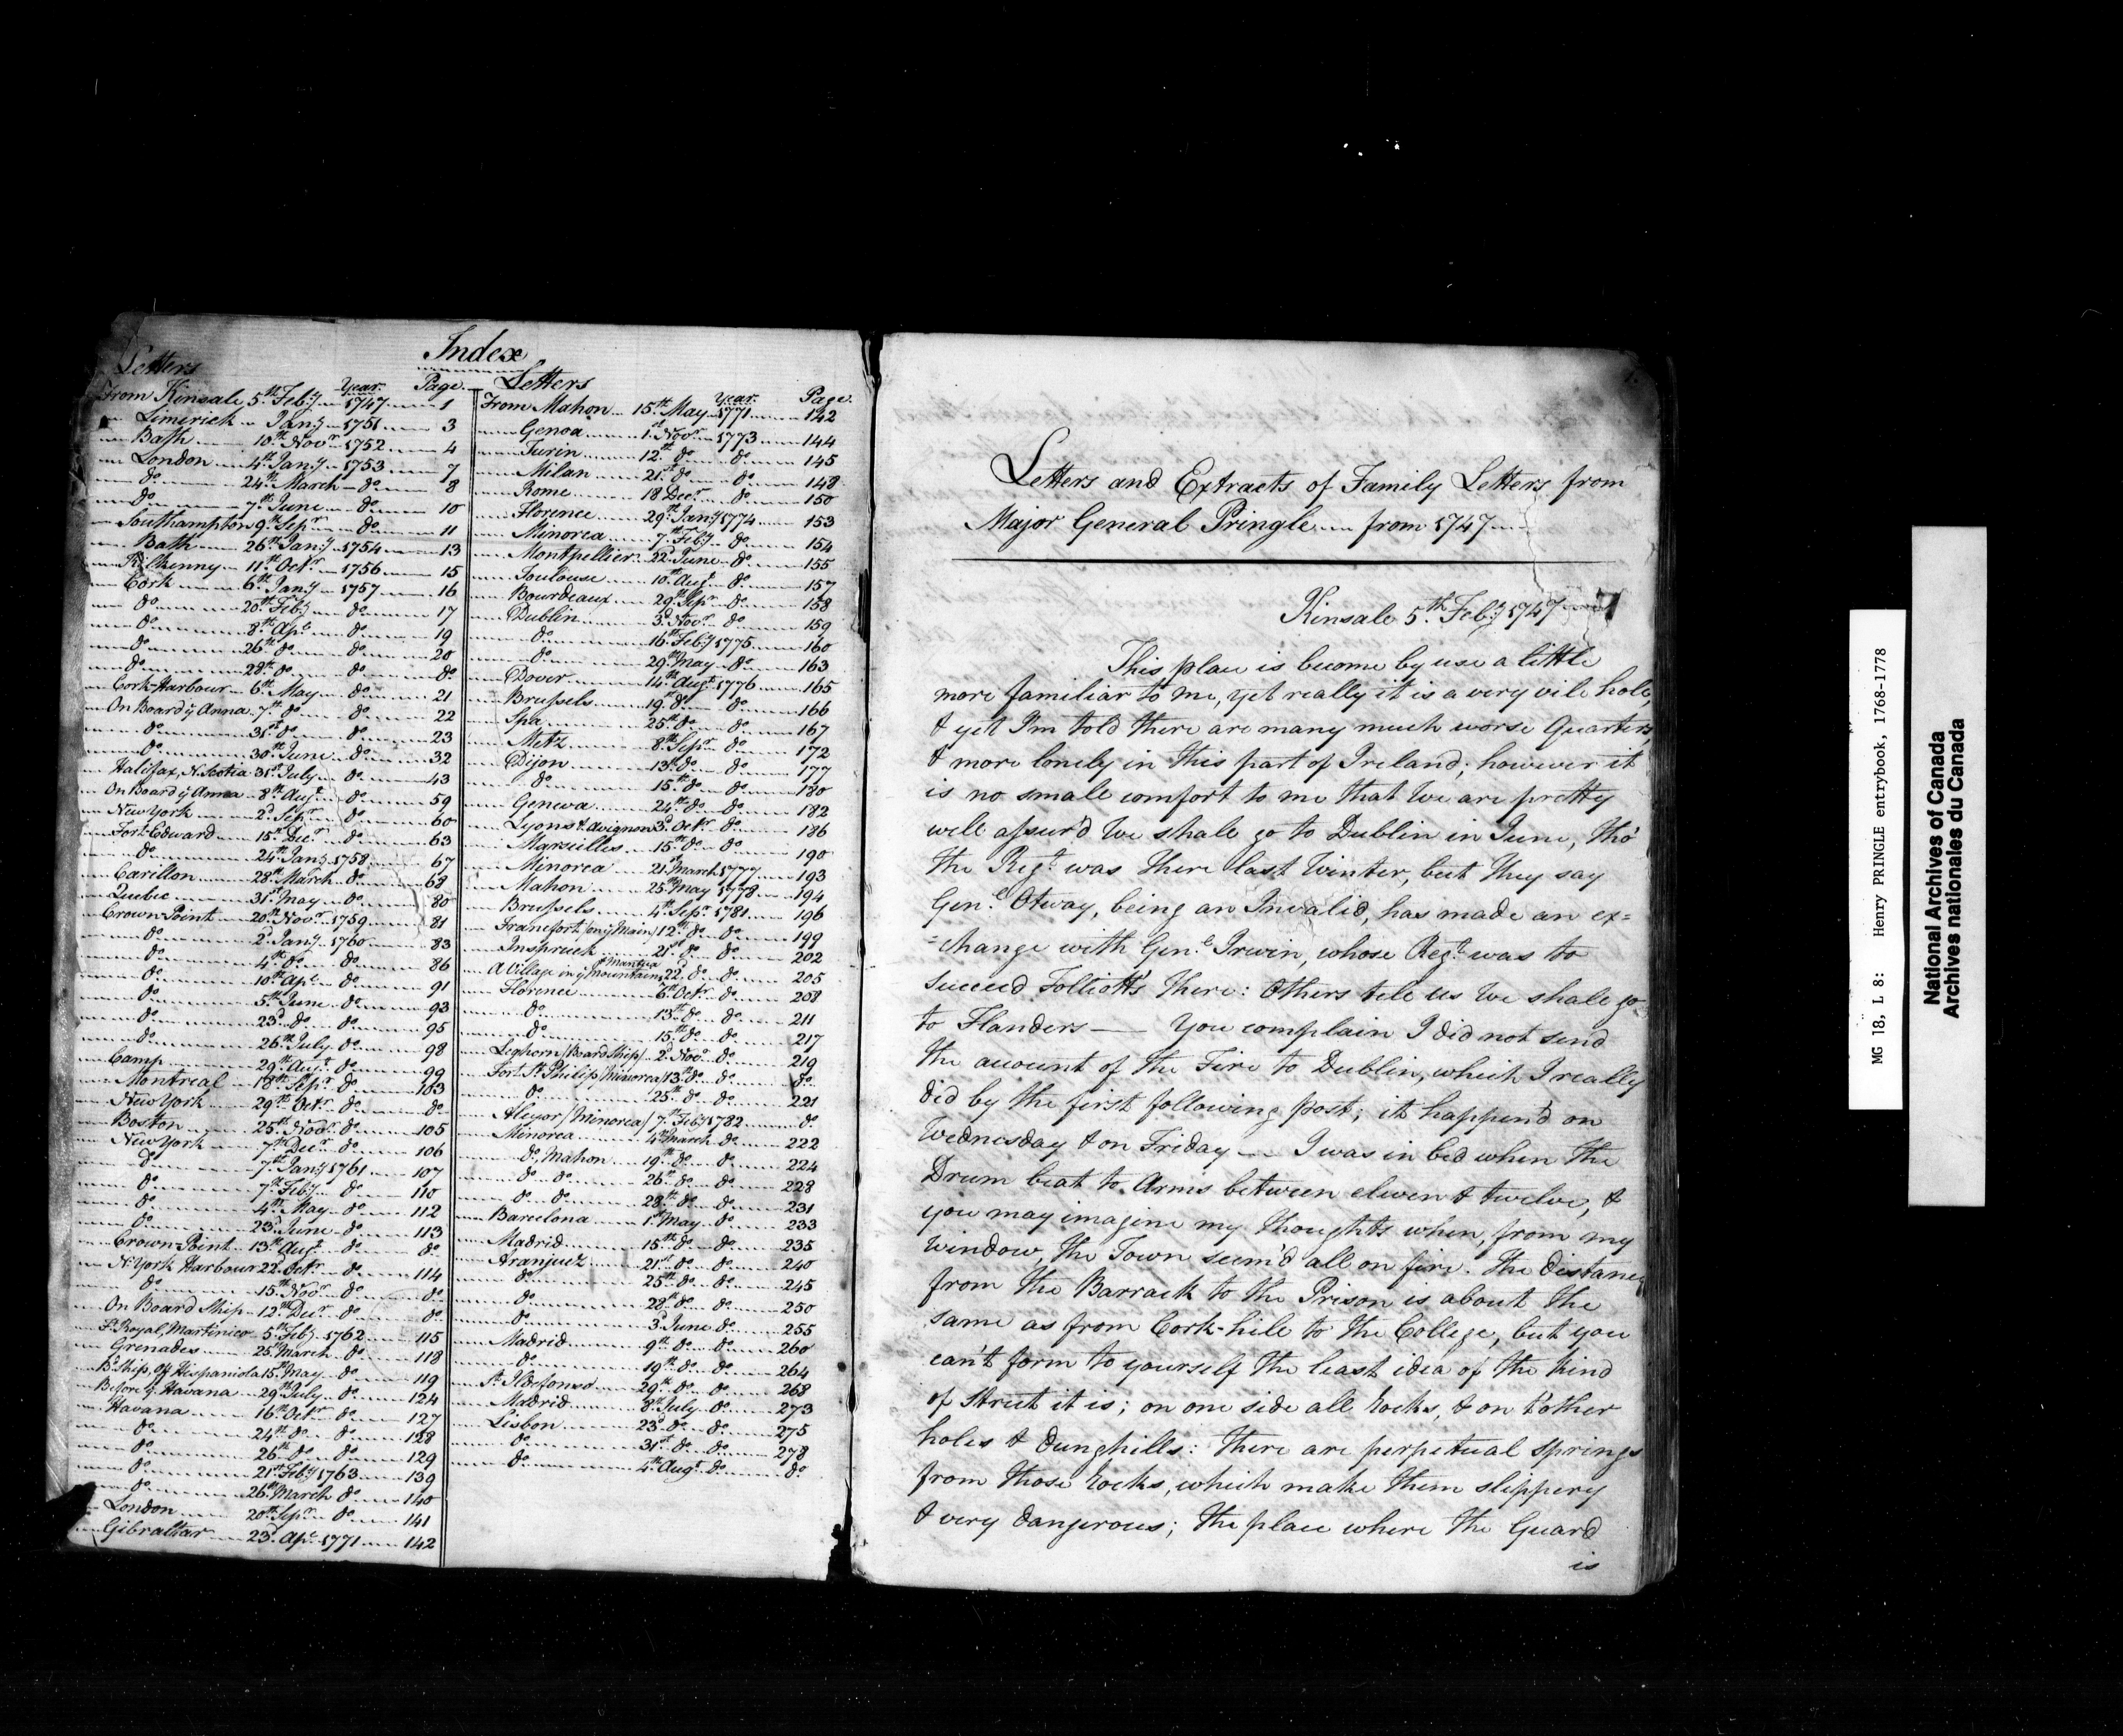 Index
Letters Year. Page.
From Kinsale 5th Feby 1747 1
Limerick Jany 1751 3
Bath 10th Novr 1752 4
London 4th Jany 1753 7
do 24th March do 8
do 7th June do 10
Southampton 9th Sepr do 11
Bath 26th Jany 1754 13
Kilkenny 11th Octr 1756 15
Cork 6th Jany 1757 16
do 20th Feby do 17
do 8th Apl do 19
do 26th do do 20
do 28th do do do
Cork-Harbour 6th May do 21
On Board ye Anna 7th do do 22
do 31st do do 23
do 30th June do 32
Halifax, N. Scotia 31st July do 43
On Board ye Anna 8th Augt do 59
New York 2d Sepr do 60
Fort-Edward 15th Decr do 63
do 24th Jany 1758 67
Carillon 28th March do 68
Quebec 31st May do 80
Crown Point 20th Novr 1759 81
do 2d Jany 1760 83
do 4th do do 86
do 10th Apl do 91
do 5th June do 93
do 23d do do 95
do 26th July do 98
Camp 29th Augt do 99
Montreal 18th Sepr do 103
New York 29th Octr do do
Boston 25th Novr do 105
New York 7th Decr do 106
do 7th Jany 1761 107
do 7th Feby do 110
do 4th May do 112
do 23d June do 113
Crown Point 13th Augt do do
N. York Harbour 22 Octr do 114
do 15th Novr do do
On Board Ship 12th Decr do do
Ft Royal, Martinico 5th Feby 1762 115
Grenades 25th March do 118
Bd Ship, off Hispaniola 15th May do 119
Before ye Havana 29th July do 124
Havana 16th Octr do 127
do 24th do do 128
do 26th do do 129
do 21st Feby 1763 139
do 26th March do 140
London 20th Sepr do 141
Gibraltar 23d Apl 1771 142
Letters Year. Page.
From Mahon 15th May 1771 142
Genoa 1st Novr 1773 144
Turin 12th do do 145
Milan 21st do do 148
Rome 18 Decr do 150
Florence 29th Jany 1774 153
Minorca 7th Feby do 154
Montpellier 22d June do 155
Toulouse 10th Augt do 157
Bourdeaux 29th Sepr do 158
Dublin 3d Novr do 159
do 16th Feby 1775 160
do 29th May do 163
Dover 14th Augt 1776 165
Brussels 19th do do 166
Spa 25th do do 167
Metz 8th Sepr do 172
Dijon 13th do do 177
do 15th do do 180
Geneva 24th do do 182
Lyons & Avignon 3d Octr do 186
Marseilles 15th do do 190
Minorca 21st March 1777 193
Mahon 25th May 1778 194
Brussels 4th Sepr 1781 196
Francfort (on ye Main) 12th do do 199
Inspruck 21st do do 202
A Village in ye Mantua Mountains 22d do do 205
Florence 6th Octr do 208
do 13th do do 211
do 15th do do 217
Leghorn (Board Ship) 2d Novr do 219
Fort St Philip (Minorca) 13th do do do
do 25th do do 221
Aleyor (Minorca) 7th Feby 1782 do
Minorca 4th March do 222
do, Mahon 19th do do 224
do do 26th do do 228
do do 28th do do 231
Barcelona 1st May do 233
Madrid 15th do do 235
Aranjuez 21st do do 240
do 25th do do 245
do 28th do do 250
do 3d June do 255
Madrid 9th do do 260
do 19th do do 264
St Ildefonso 29th do do 268
Madrid 8th July do 273
Lisbon 23d do do 275
do 31st do do 278
do 4th Augt do do
1.
Letters and Extracts of Family Letters from
Major General Pringle from 1747
Kinsale 5th Feby 1747
This place is become by use a little
more familiar to me, yet really it is a very vile hole,
& yet I'm told there are many much worse Quarters,
& more lonely in this part of Ireland; however it
is no small comfort to me that we are pretty
well assur'd we shall go to Dublin in June, tho'
the Regt was there last Winter, but they say
Genl Otway, being an Invalid, has made an ex=
=change with Genl Irwin, whose Regt was to
succeed Folliott's there: Others tell us we shall go
to Flanders — You complain I did not send
the account of the Fire to Dublin, which I really
did by the first following post; it happen'd on
Wednesday & on Friday — I was in bed when the
Drum beat to Arms between eleven & twelve, &
you may imagine my thoughts when, from my
window, the Town seem'd all on fire. The distance
from the Barrack to the Prison is about the
same as from Cork-hill to the College, but you
can't form to yourself the least idea of the kind
of Street it is; on one side all Rocks, & on t'other
holes & dunghills: there are perpetual springs
from those Rocks, which make them slippery
& very dangerous; the place where the Guard
is
MG 18, L 8: Henry PRINGLE entrybook, 1768-1778
National Archives of Canada
Archives nationales du Canada